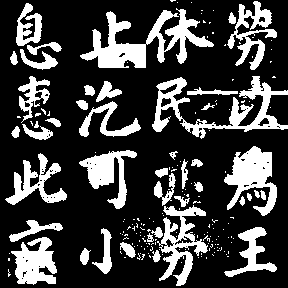 勞以為王
休民亦勞
止汔可小
息惠此京